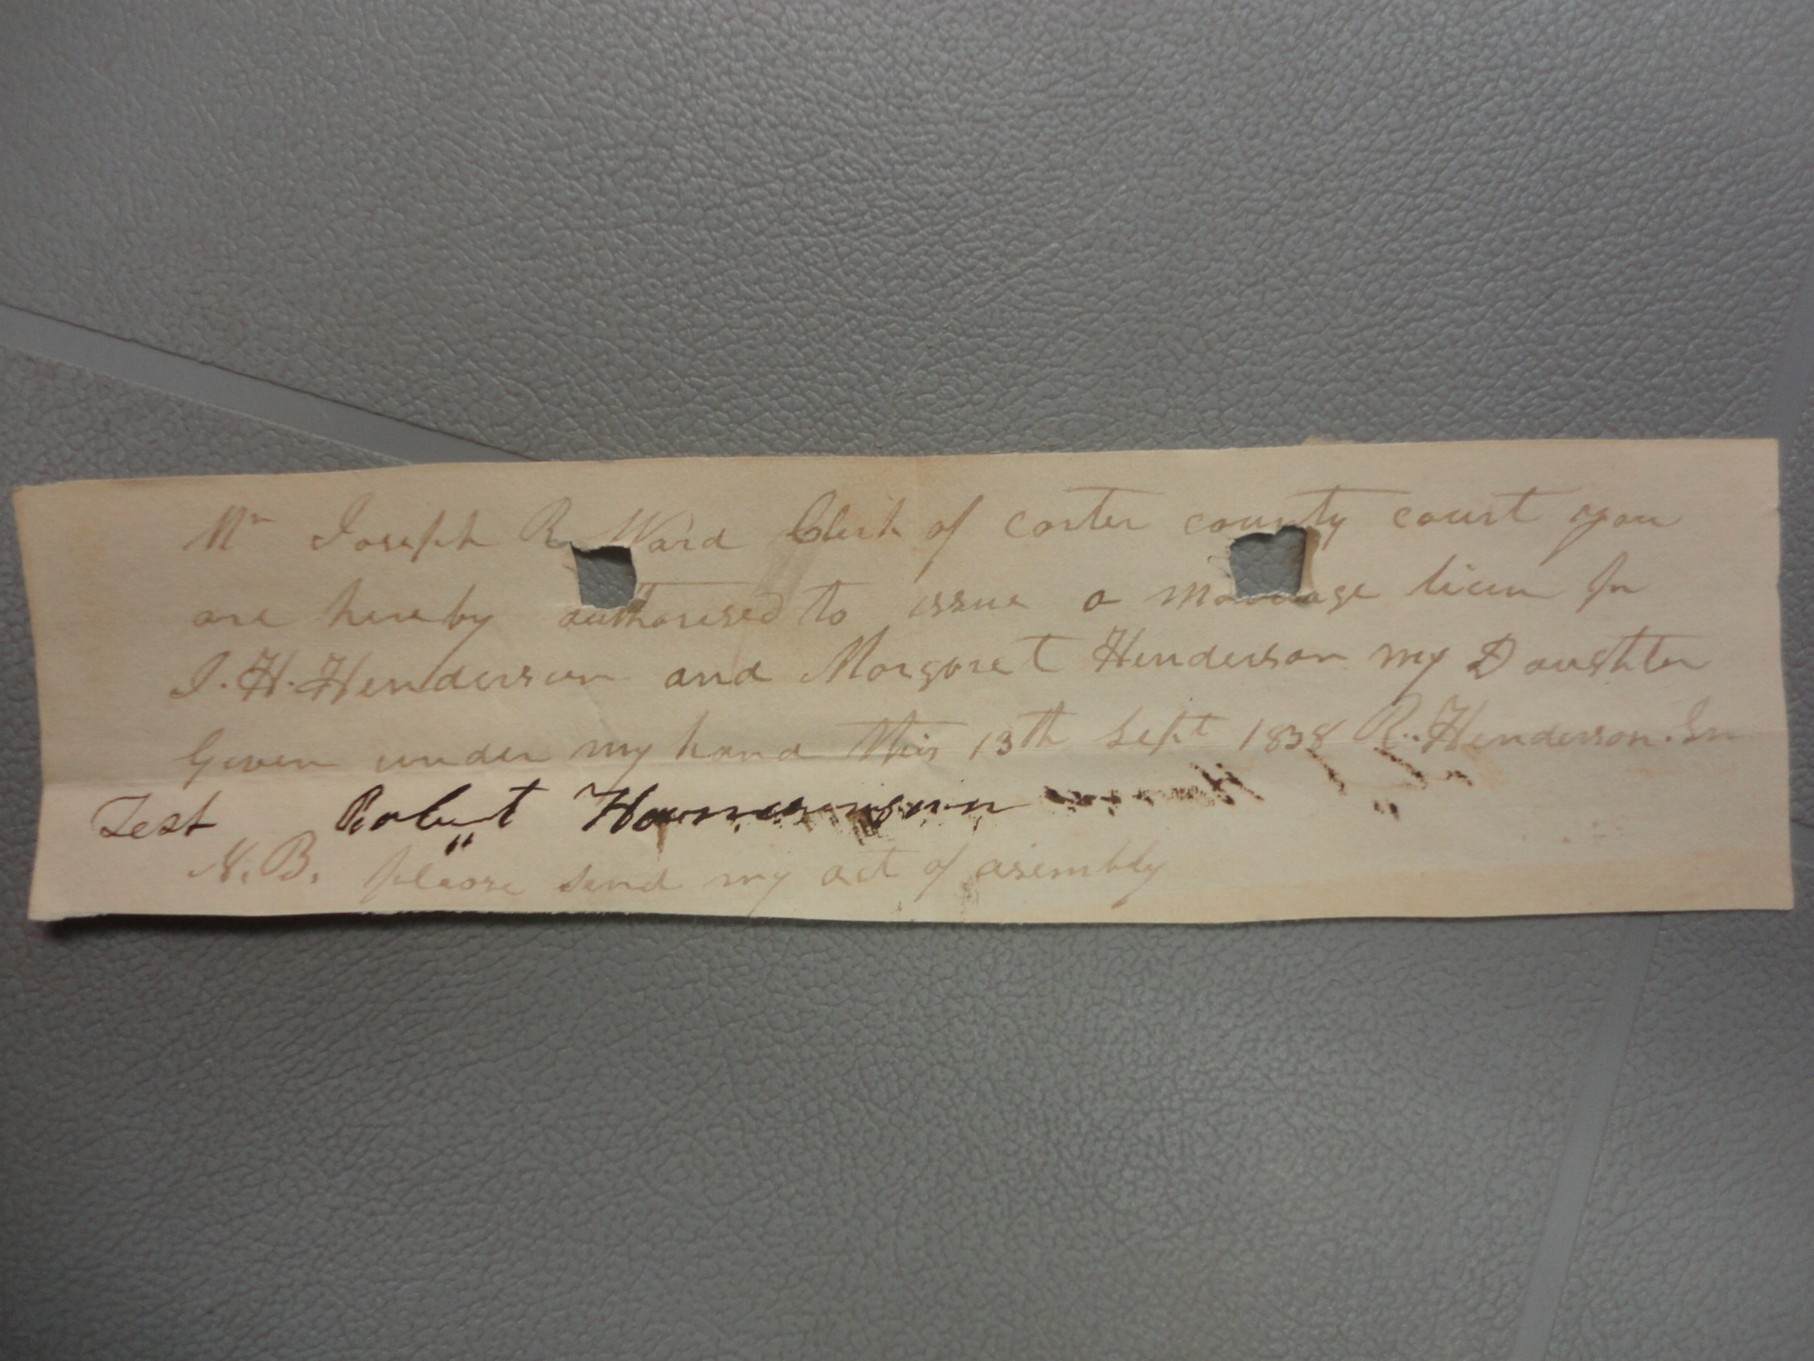 Mr Joseph R. Ward Clerk of carter county court you
are hereby authorised to issue a Marriage licen for
J. H. Henderson and Margaret Henderson my Daughter
Given under my hand this 13th Sept 1838 R. Henderson. Sn
Test Robert
N. B. please send my act of asembly